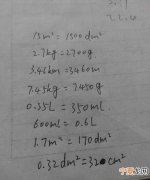 15m² = 1500dm²
2.7kg = 2700g
3.46km = 3460m
7.45kg = 7450g
0.35L = 350ml
600ml = 0.6L
1.7m² = 170dm²
0.32dm² = 32cm²
宝妈好圈